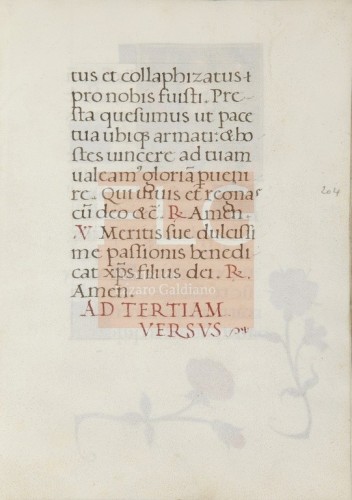 tus et collaphizatus ⁊
pro nobis fuisti. Pre
sta quesumus ut pace
tua ubiqꝫ armati: & ho
stes uincere ad tuam
ualeamꝰ gloriā ꝑueni
re. Qui uiuis et regnas
cū deo & c̄. ℟. Amen.
℣ Meritis sue dulcissi
me passionis benedi
cat xp̄s filius dei. ℟.
Amen.
AD TERTIAM
VERSVS
204
FLG
Lázaro Galdiano